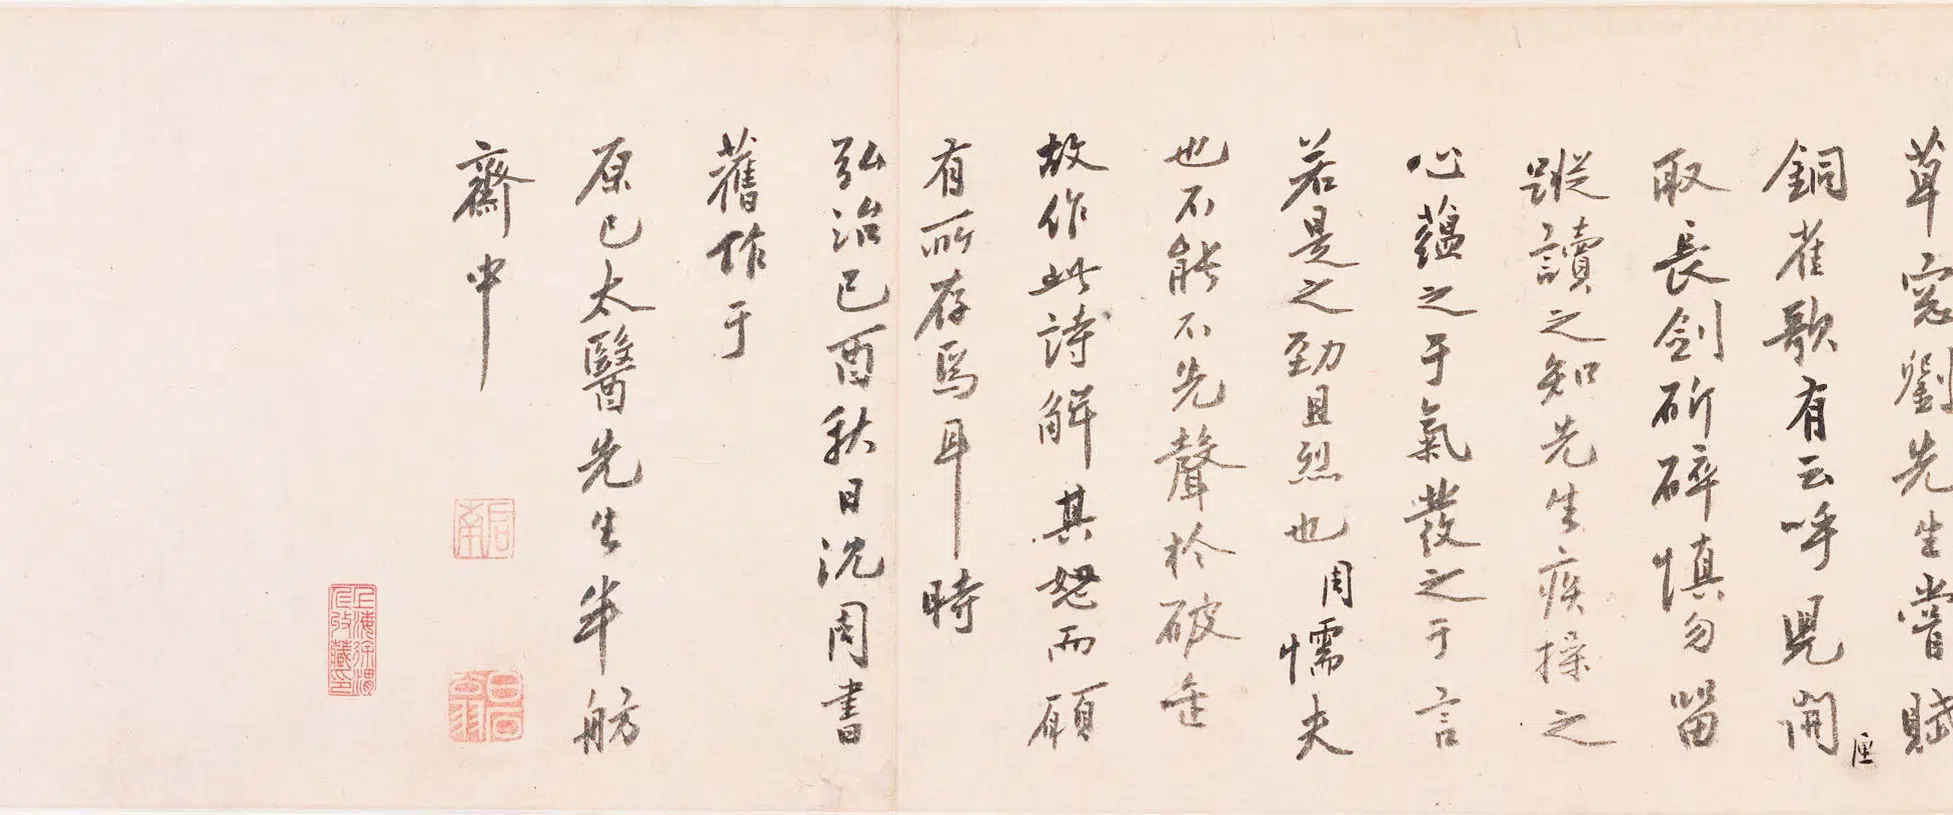 草窓劉先生嘗賦
銅雀歌有云呼兒開匣
取長劍斫碎慎勿留
蹤讀之知先生疾操之
心蘊之于氣發之于言
若是之勁且烈也周懦夫
也不能不先聲於破缶
故作此詩解其怒而顧
有所存焉耳時
弘治己酉秋日沈周書
舊作于
原已太醫先生半舫
齋中
启南
白石翁
上海徐渭仁收藏印